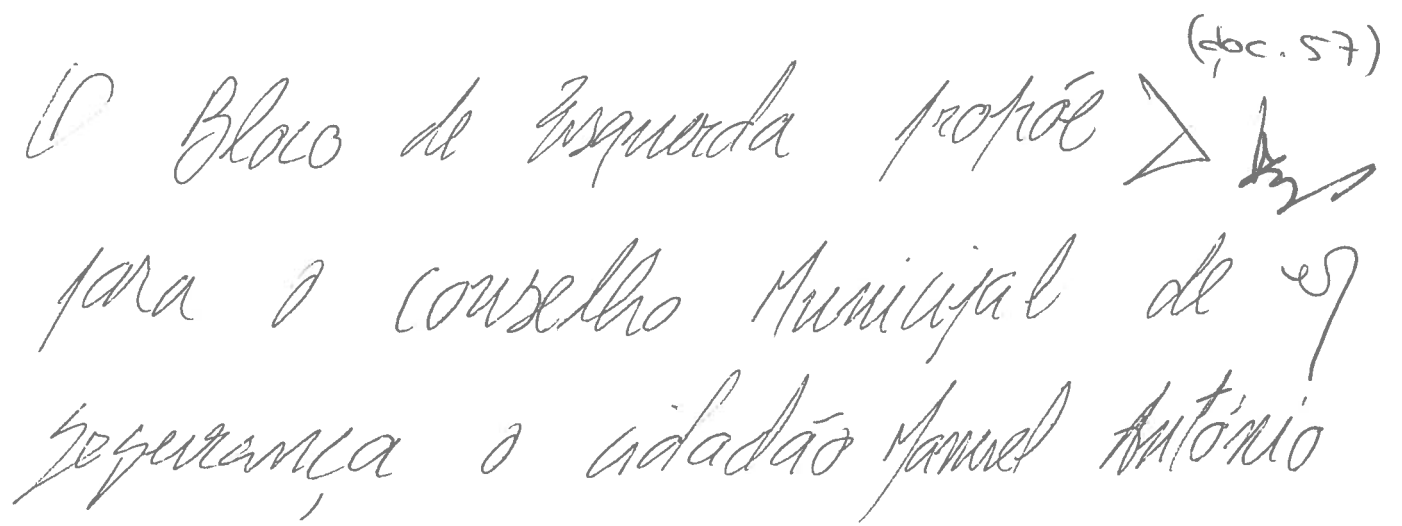 (doc. 57)
O Bloco de Esquerda propõe
para o Conselho Municipal de
Segurança o cidadão Manuel António